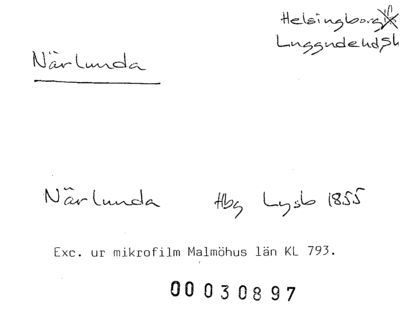 Helsingborg
Luggude hd Sk
Närlunda
Närlunda Hbg Lysb 1855
Exc. ur mikrofilm Malmöhus län KL 793.
00030897